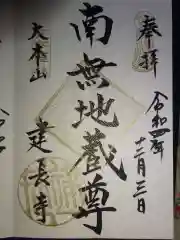 奉拝
令和四年
十二月三日
南無地蔵尊
大本山
建長寺